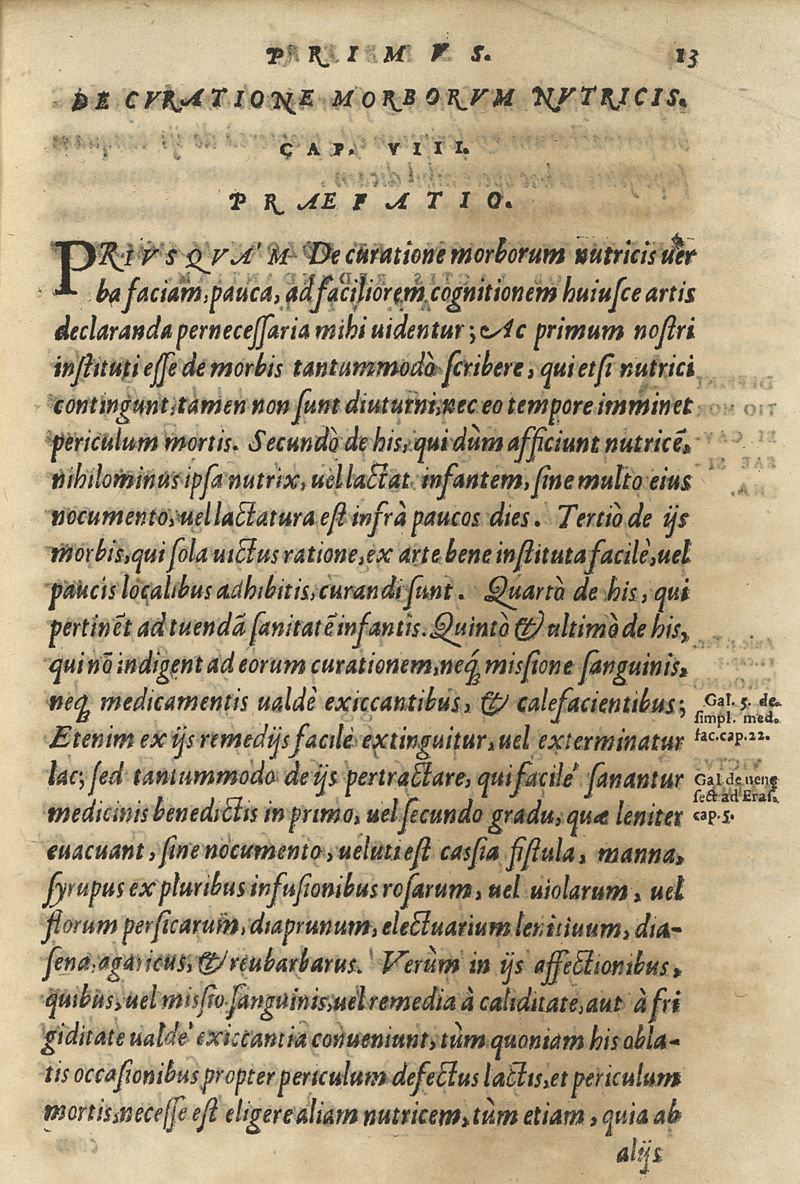 PRIMVS. 13
DE CVRATIONE MORBORVM NVTRICIS.
CAP. VIII.
PRAEFATIO.
PRIVSQVA'M De curatione morborum nutricis uer
ba faciam, pauca, ad faciliorem cognitionem huiusce artis
declaranda pernecessaria mihi uidentur; Ac primum nostri
instituti esse de morbis tantummodò scribere, qui etsi nutrici
contingunt, tamen non sunt diuturni, nec eo tempore imminet
periculum mortis. Secundò de his, qui dùm afficiunt nutricē,
nihilominus ipsa nutrix, uel lactat infantem, sine multo eius
nocumento, uel lactatura est infrà paucos dies. Tertiò de ijs
morbis, qui sola uictus ratione, ex arte bene instituta facilè, uel
paucis localibus adhibitis, curandi sunt. Quartò de his, qui
pertinēt ad tuendā sanitatē infantis. Quintò & ultimò de his,
qui nō indigent ad eorum curationem, neq; missione sanguinis,
neq; medicamentis ualdè exiccantibus, & calefacientibus;
Gal. 5. de
simpl. med.
fac. cap. 22.
Etenim ex ijs remedijs facilè extinguitur, uel exterminatur
lac; sed tantummodo de ijs pertractare, qui facile' sanantur
Gal de uenę
sect ad Eras.
cap. 5.
medicinis benedictis in primo, uel secundo gradu, quæ leniter
euacuant, sine nocumento, ueluti est cassia fistula, manna,
syrupus ex pluribus infusionibus rosarum, uel uiolarum, uel
florum persicarum, diaprunum, electuarium lenitiuum, dia-
sena, agaricus, & reubarbarus. Verùm in ijs affectionibus,
quibus, uel missio sanguinis, uel remedia à caliditate, aut à fri
giditate ualde' exiccantia conueniunt, tùm quoniam his obla-
tis occasionibus propter periculum defectus lactis, et periculum
mortis, necesse est eligere aliam nutricem, tùm etiam, quia ab
alijs